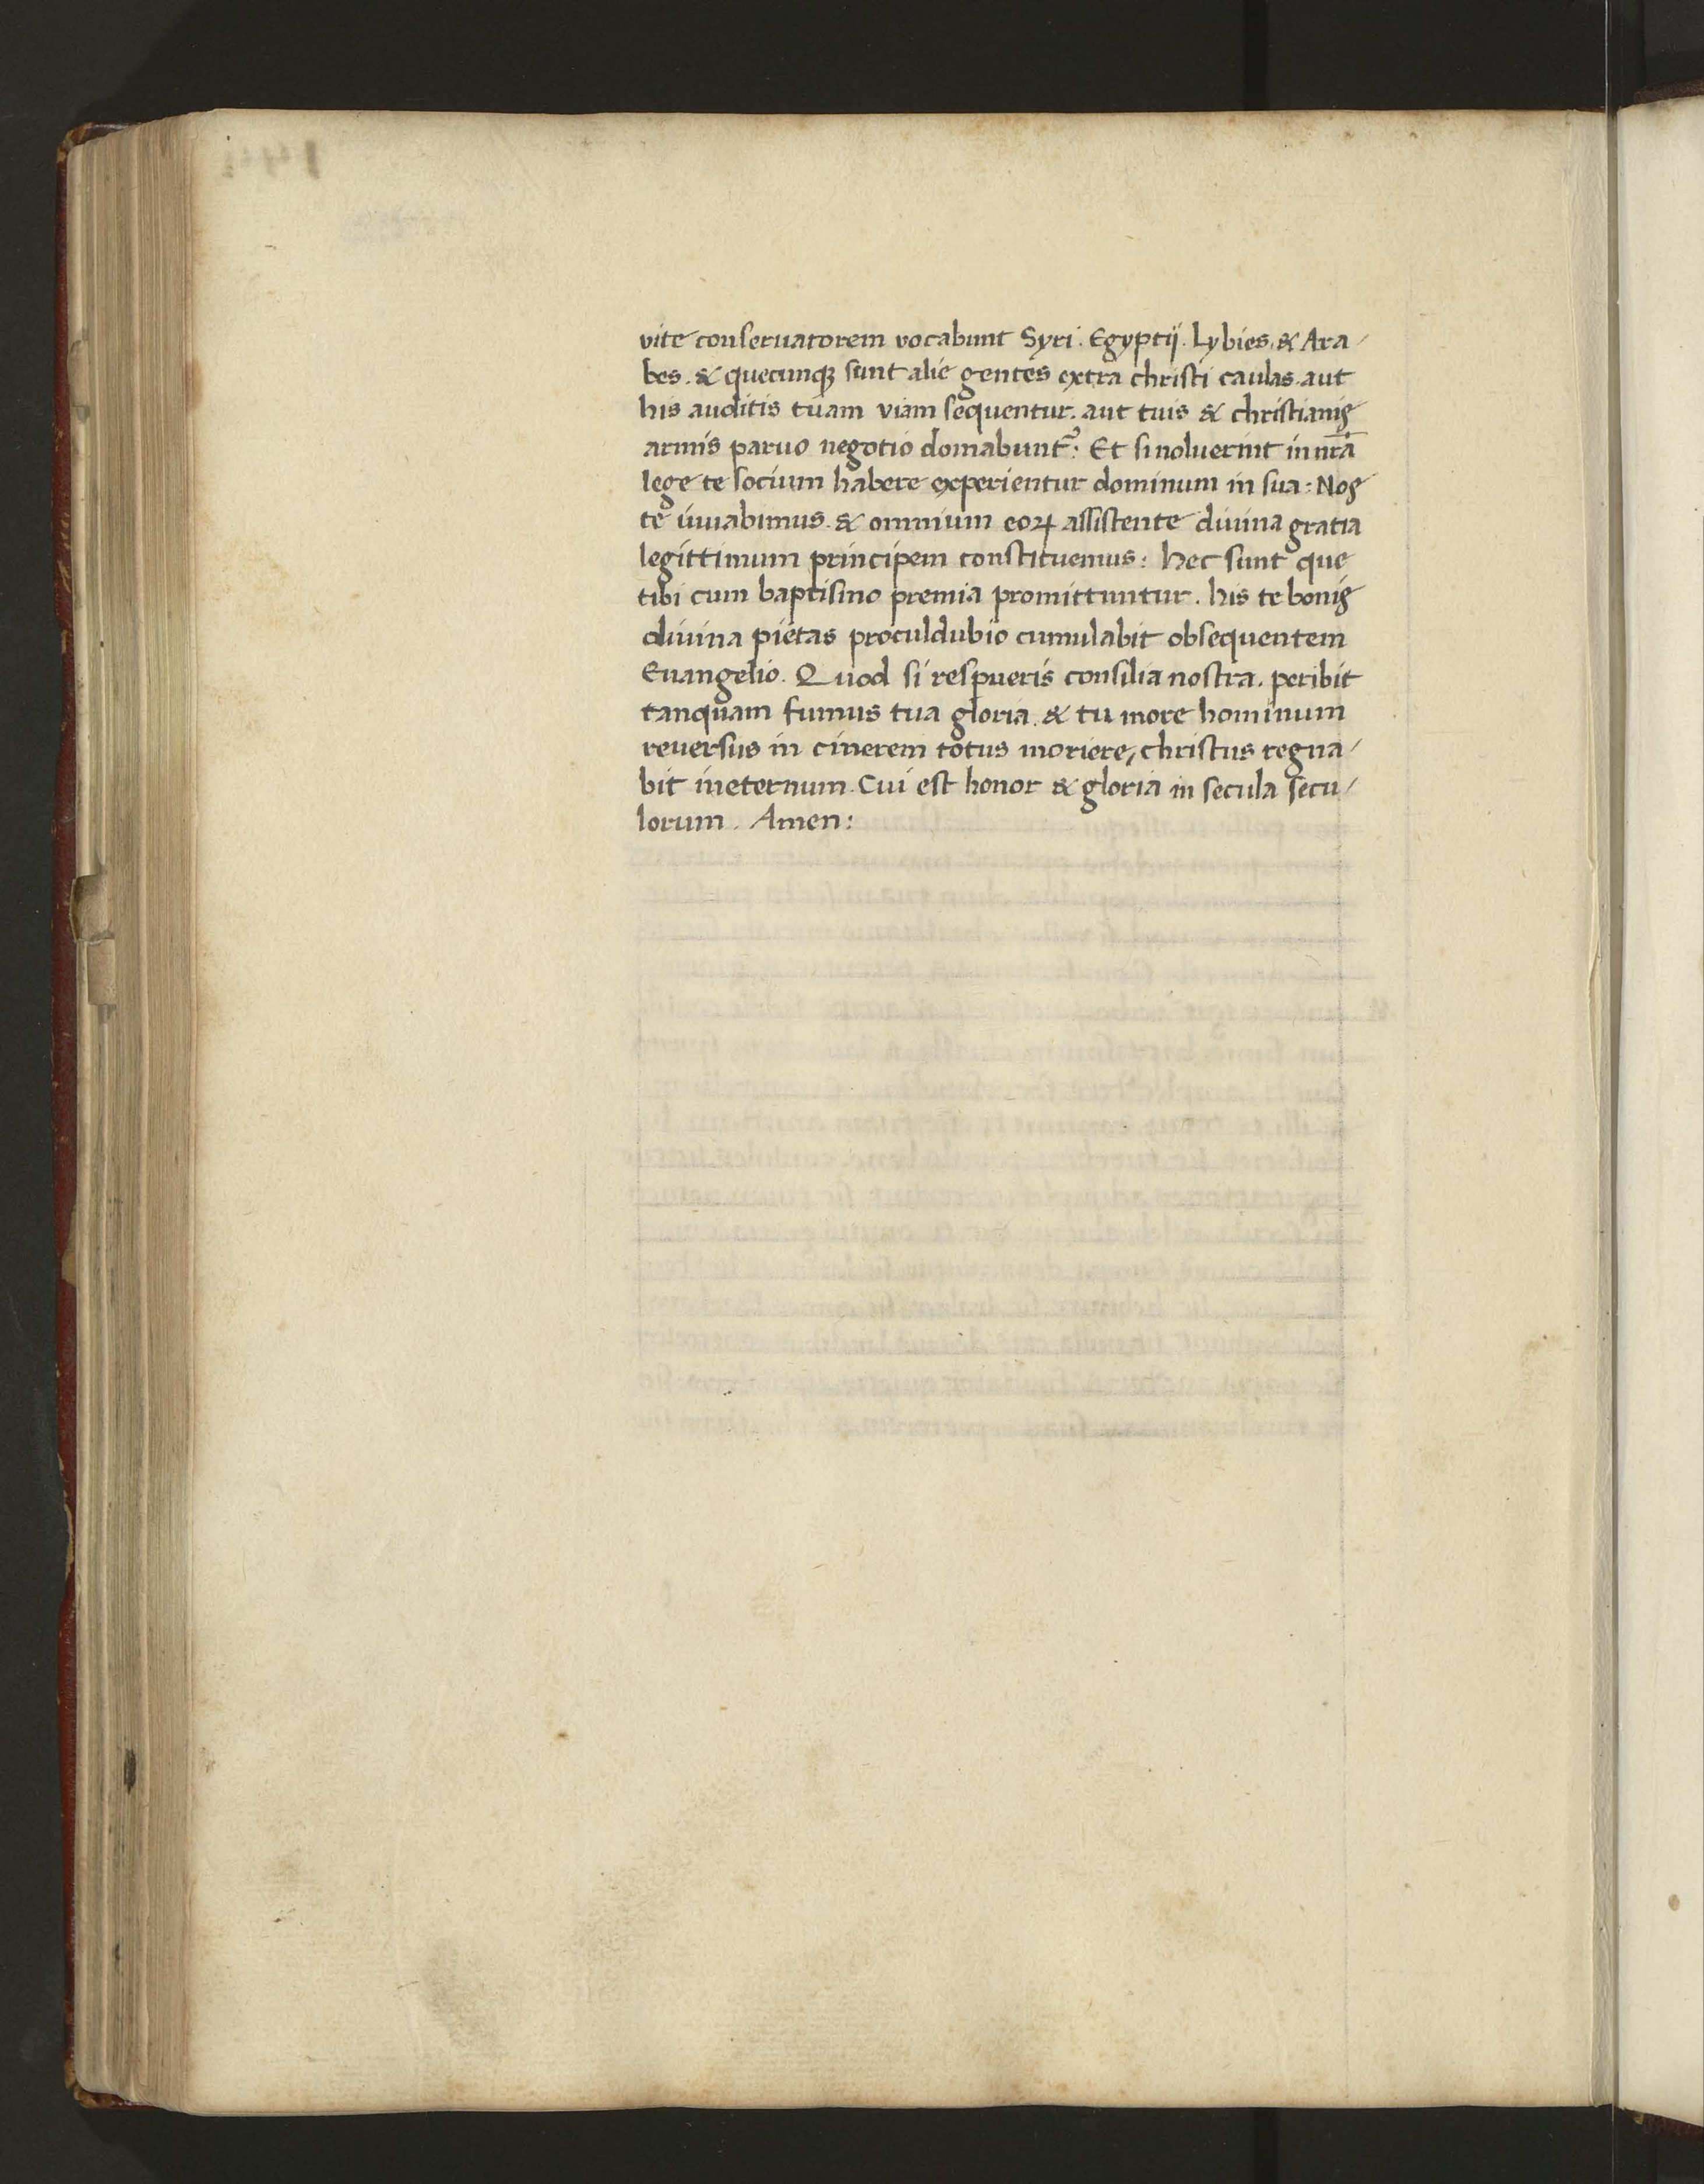 vite conseruatorem vocabunt Syri. Egyptij. Lybies. & Ara/
bes. & quecunqꝫ sunt alie gentes extra christi caulas. aut
his auditis tuam viam sequentur. aut tuis & christianis
armis paruo negotio domabunt᷑: Et si noluerint in nr̄a
lege te socium habere experientur dominum in sua: Nos
te iuuabimus. & omnium eoꝝ assistente diuina gratia
legittimum principem constituemus: hec sunt que
tibi cum baptismo premia promittuntur. his te bonis
diuina pietas proculdubio cumulabit obsequentem
Euangelio. Quod si respueris consilia nostra. peribit
tanquam fumus tua gloria. & tu more hominum
reuersus in cinerem totus moriere, christus regna/
bit ineternum. Cui est honor & gloria in secula secu/
lorum. Amen: